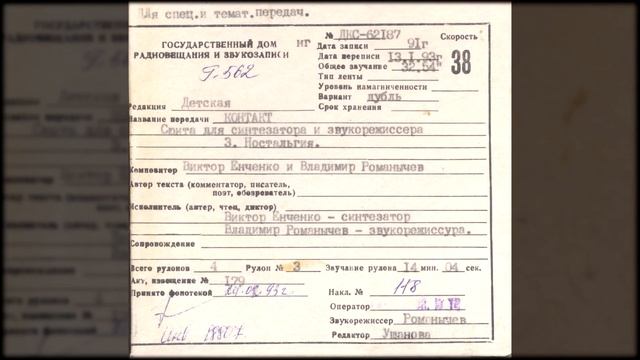 Для спец.и темат.передач.
№ ДКС-62187 Скорость
38
ГОСУДАРСТВЕННЫЙ ДОМ
РАДИОВЕЩАНИЯ И ЗВУКОЗАПИСИ
нг
Г.562
Дата записи 91г
Дата переписи 13.I.93г
Общее звучание 32.54"
Тип ленты
Уровень намагниченности
Вариант дубль
Срок хранения
Редакция Детская
Название передачи КОНТАКТ
Сюита для синтезатора и звукорежиссера
3. Ностальгия.
Композитор Виктор Енченко и Владимир Романычев
Автор текста (комментатор, писатель,
поэт, обозреватель)
Исполнитель (актер, чтец, диктор)
Виктор Енченко - синтезатор
Владимир Романычев - звукорежиссура.
Сопровождение
Всего рулонов 4 Рулон № 3 Звучание рулона 14 мин. 04 сек.
Акт, извещение № 179
Принято фонотекой
Накл. № Н8
Оператор
Звукорежиссер Романычев
Редактор Ушакова